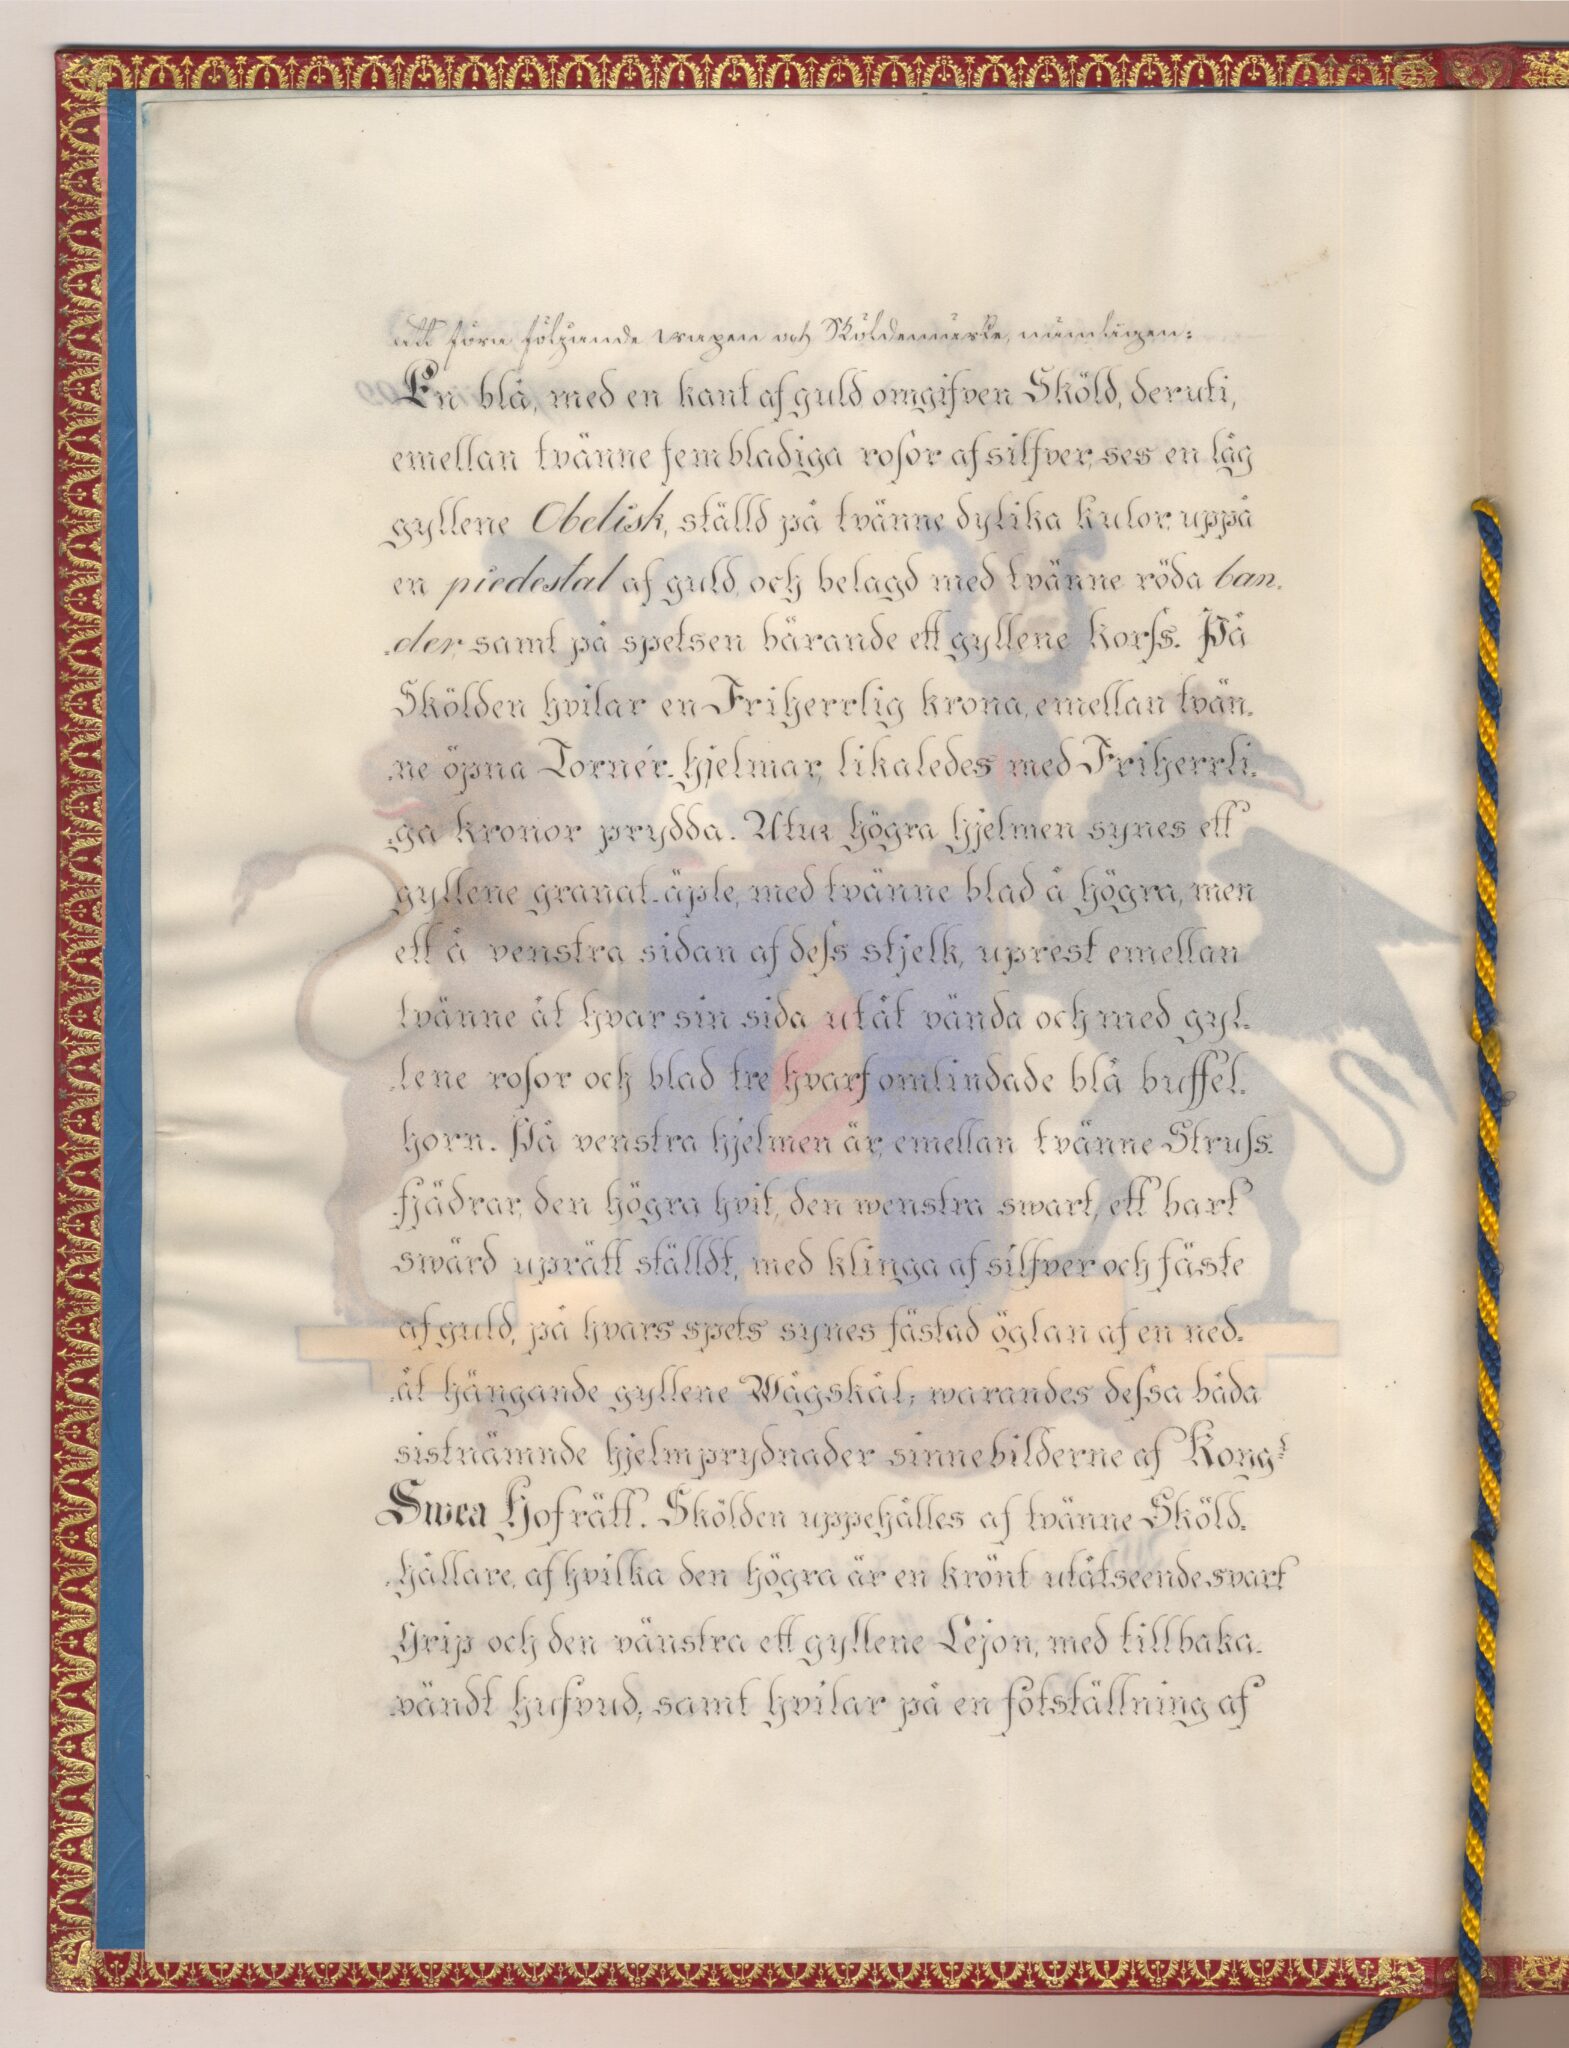 att föra följande wapen och Sköldemärke, nämligen:
En blå, med en kant af guld omgifven Sköld, deruti,
emellan tvänne fembladiga rosor af silfver, ses en låg
gyllene Obelisk, ställd på tvänne dylika kulor, uppå
en piedestal af guld, och belagd med tvänne röda ban-
-der, samt på spetsen bärande ett gyllene korss. På
Skölden hvilar en Friherrlig krona, emellan tvän-
-ne öpna Tornér-hjelmar, likaledes med Friherrli-
-ga kronor prydda. Utur högra hjelmen synes ett
gyllene granat-äple, med tvänne blad å högra, men
ett å venstra sidan af dess stjelk, uprest emellan
tvänne åt hvar sin sida utåt vända och med gyl-
-lene rosor och blad tre hvarf omlindade blå buffel-
horn. På venstra hjelmen är, emellan tvänne Struss-
-fjädrar, den högra hvit, den wenstra swart, ett bart
swärd uprätt ställdt, med klinga af silfver och fäste
af guld, på hvars spets synes fästad öglan af en ned-
-åt hängande gyllene Wågskål; warandes dessa båda
sistnämnde hjelmprydnader sinnebilderne af Kongl
Swea Hofrätt. Skölden uppehålles af tvänne Sköld-
-hållare, af hvilka den högra är en krönt utåtseende svart
Grip och den vänstra ett gyllene Lejon, med tillbaka-
-vändt hufvud, samt hvilar på en fotställning af